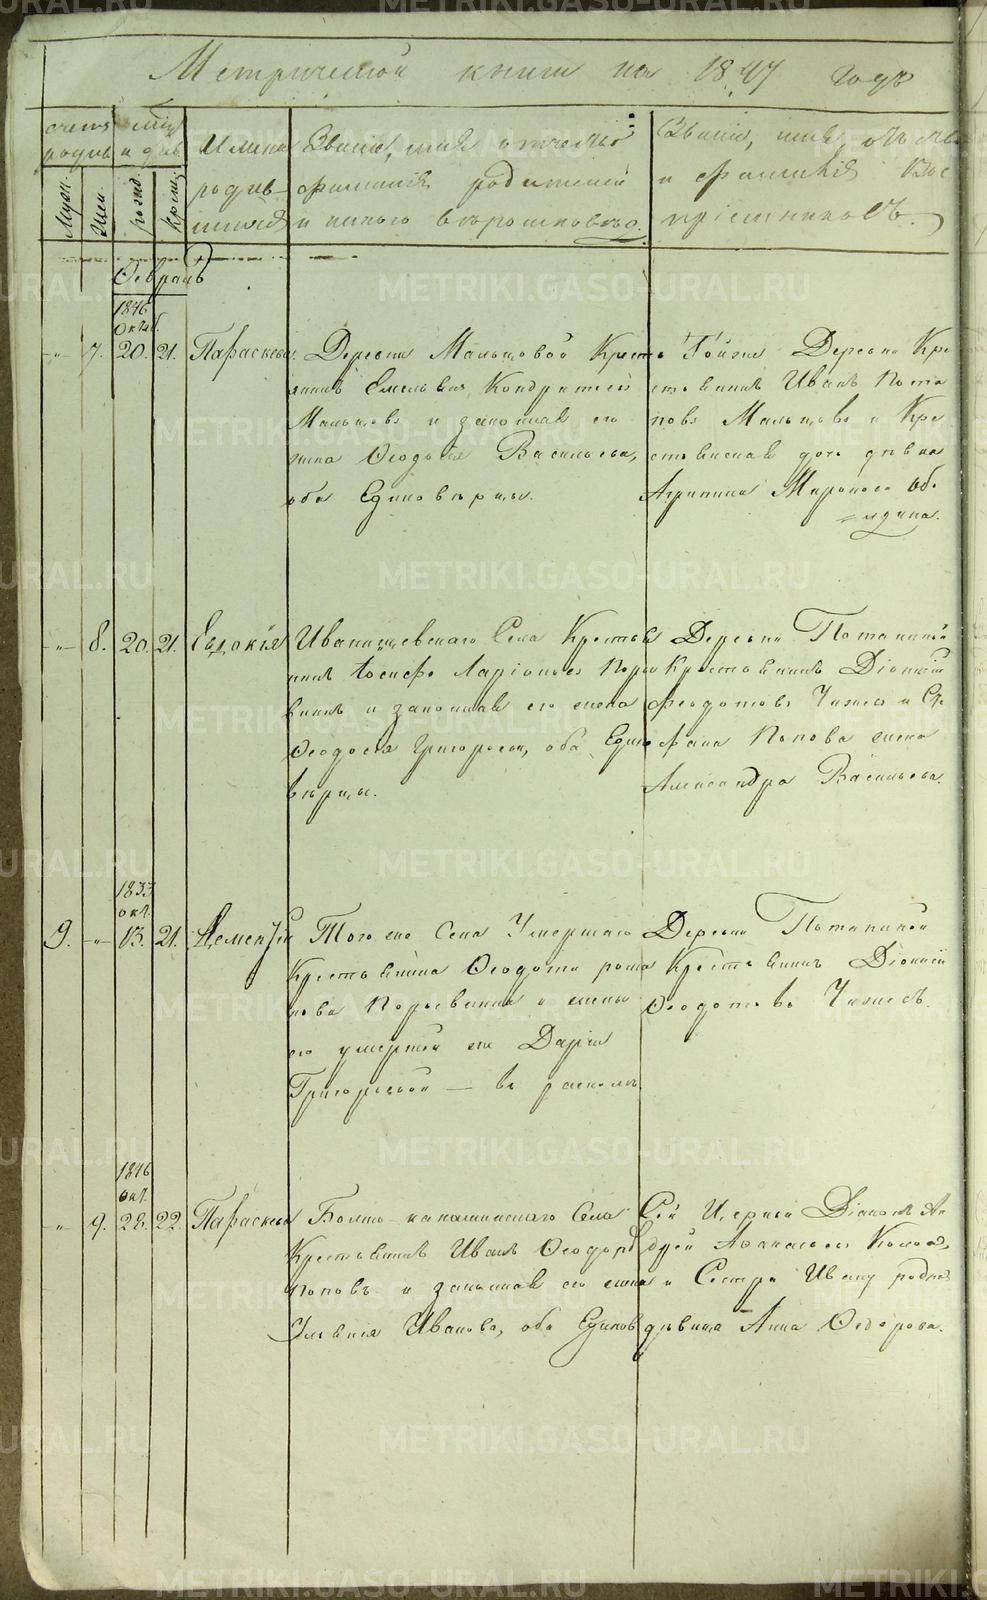 Метрической книги на 1847 годъ
счетъ родив
мцъ и днь
Муж.
Жен.
рожд.
крещ.
Имена
родив-
шихся
Званіе, имя отчество
фамилія родителей
и какого вѣроисповѣд.
Званіе, имя, отчес
и фамилія Вос
пріемниковъ.
Февраль
1846
Октяб.
" 7. 20. 21. Параскева
Деревни Мальцовой Кресть
янинъ Емельянъ Кондратьевъ
Мальцовъ и законная его
жена Ѳеодосья Васильева,
оба Единовѣрцы.
Тойже Деревни Кре
стьянинъ Иванъ Пота
повъ Мальцовъ и Кре
стьянская дочь дѣвка
Агрипина Миронова
" 8. 20. 21. Евдокія
Иванищевскаго Села Крестья
нинъ Іосифъ Ларіоновъ
и законная его жена
Ѳеодосія Григорьева, оба Едино
вѣрцы.
Деревни Потаниной
Крестьянинъ Діонисій
Ѳеодотовъ и Сте
фана Попова жена
Александра Васильева.
1833
окт.
9. " 13. 21. Дементій
Того же Села Умершаго
Крестьянина Ѳеодота
и жены
его умершей же Дарьи
Григорьевой — въ расколѣ.
Деревни Потаниной
Крестьянинъ Діонисій
Ѳеодотовъ
1846
окт.
" 9. 28. 22. Параскева
Села
Крестьянинъ Иванъ Ѳеодоровъ
Поповъ и законная его жена
Иванова, оба Единов
Сей Церкви Діаконъ Ан
дрей Аѳанасьевъ
и Сестра Ивану родная
дѣвица Анна Ѳедорова.
METRIKI.GASO-URAL.RU